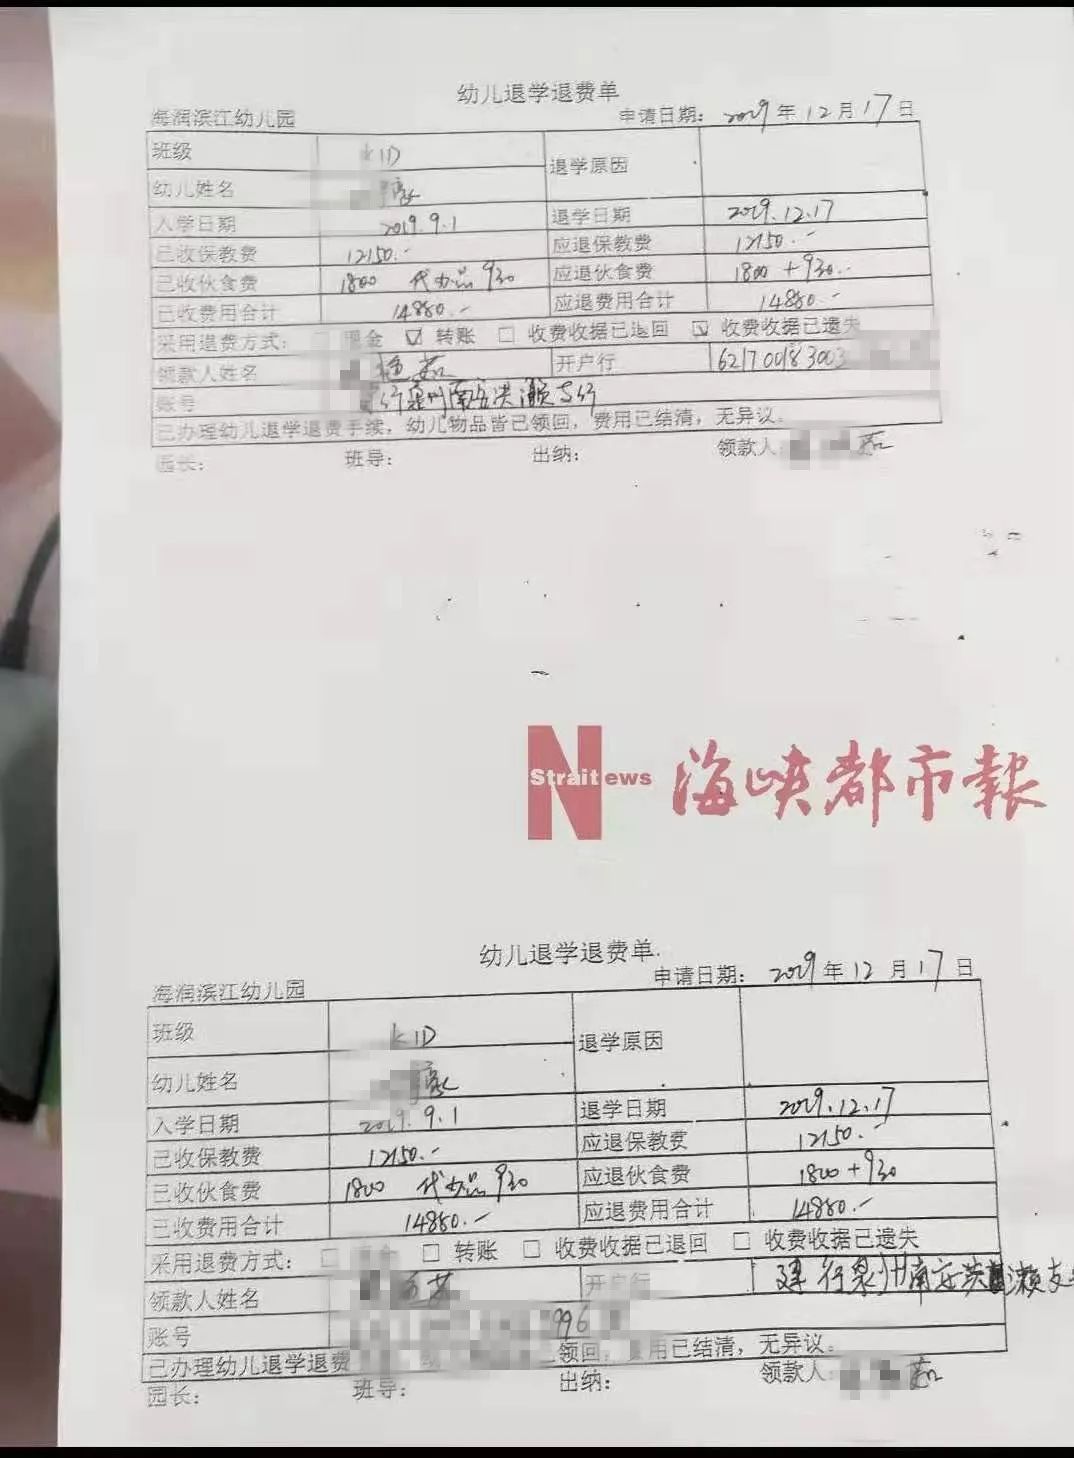 幼儿退学退费单
海润滨江幼儿园 申请日期: 2019年12月17日
班级 KID 退学原因
幼儿姓名 豪
入学日期 2019.9.1 退学日期 2019.12.17
已收保教费 12150.- 应退保教费 12150.-
已收伙食费 1800 代办品930 应退伙食费 1800+930.-
已收费用合计 14880.- 应退费用合计 14880.-
采用退费方式: □ 现金 ☑ 转账 □ 收费收据已退回 ☑ 收费收据已遗失
领款人姓名 开户行 621700183003
账号 行泉州南安洪濑支行
已办理幼儿退学退费手续，幼儿物品皆已领回，费用已结清，无异议。
园长: 班导: 出纳: 领款人: 茹
Strait News 海峡都市報
幼儿退学退费单
海润滨江幼儿园 申请日期: 2019年12月17日
班级 KID 退学原因
幼儿姓名 豪
入学日期 2019.9.1 退学日期 2019.12.17
已收保教费 12150.- 应退保教费 12150.-
已收伙食费 1800 代办品930 应退伙食费 1800+930
已收费用合计 14880.- 应退费用合计 14880.-
采用退费方式: □ 金 □ 转账 □ 收费收据已退回 □ 收费收据已遗失
领款人姓名 开户行 建行泉州南安洪濑支
账号 996
已办理幼儿退学退费 领回， 用已结清，无异议。
园长: 班导: 出纳: 领款人: 茹